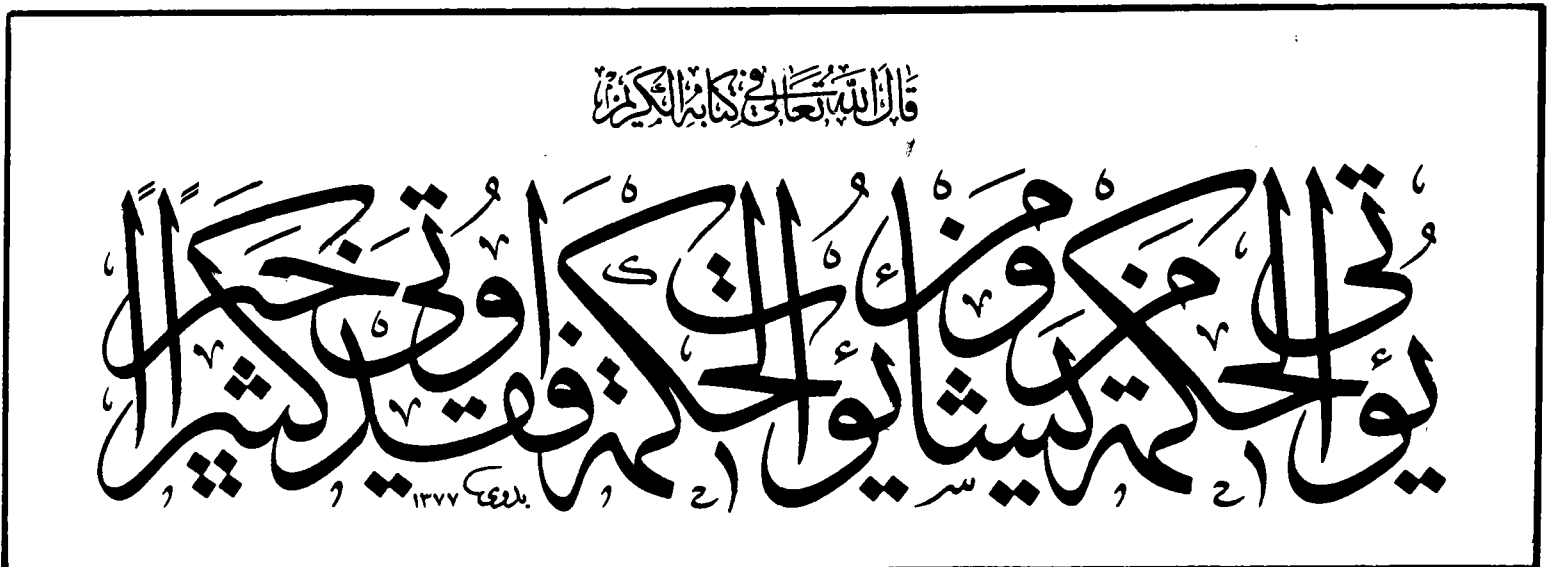 قال الله تعالى في كتابه الكريم
يؤتي الحكمة من يشاء ومن يؤت الحكمة فقد اوتي خيرا كثيرا
بدوي ١٣٧٧